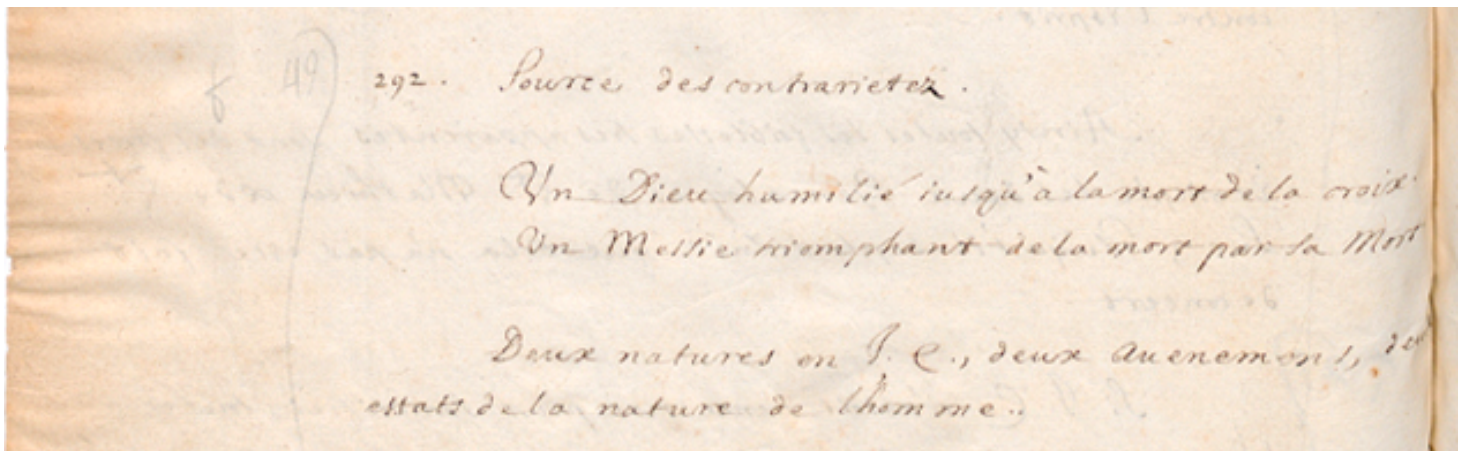 49
292. Source des contrarietez.
Un Dieu humilié iusqu'à la mort de la croix.
Un Messie triomphant de la mort par sa Mort
Deux natures en J. C., deux auenemens, deux
estats de la nature de lhomme..